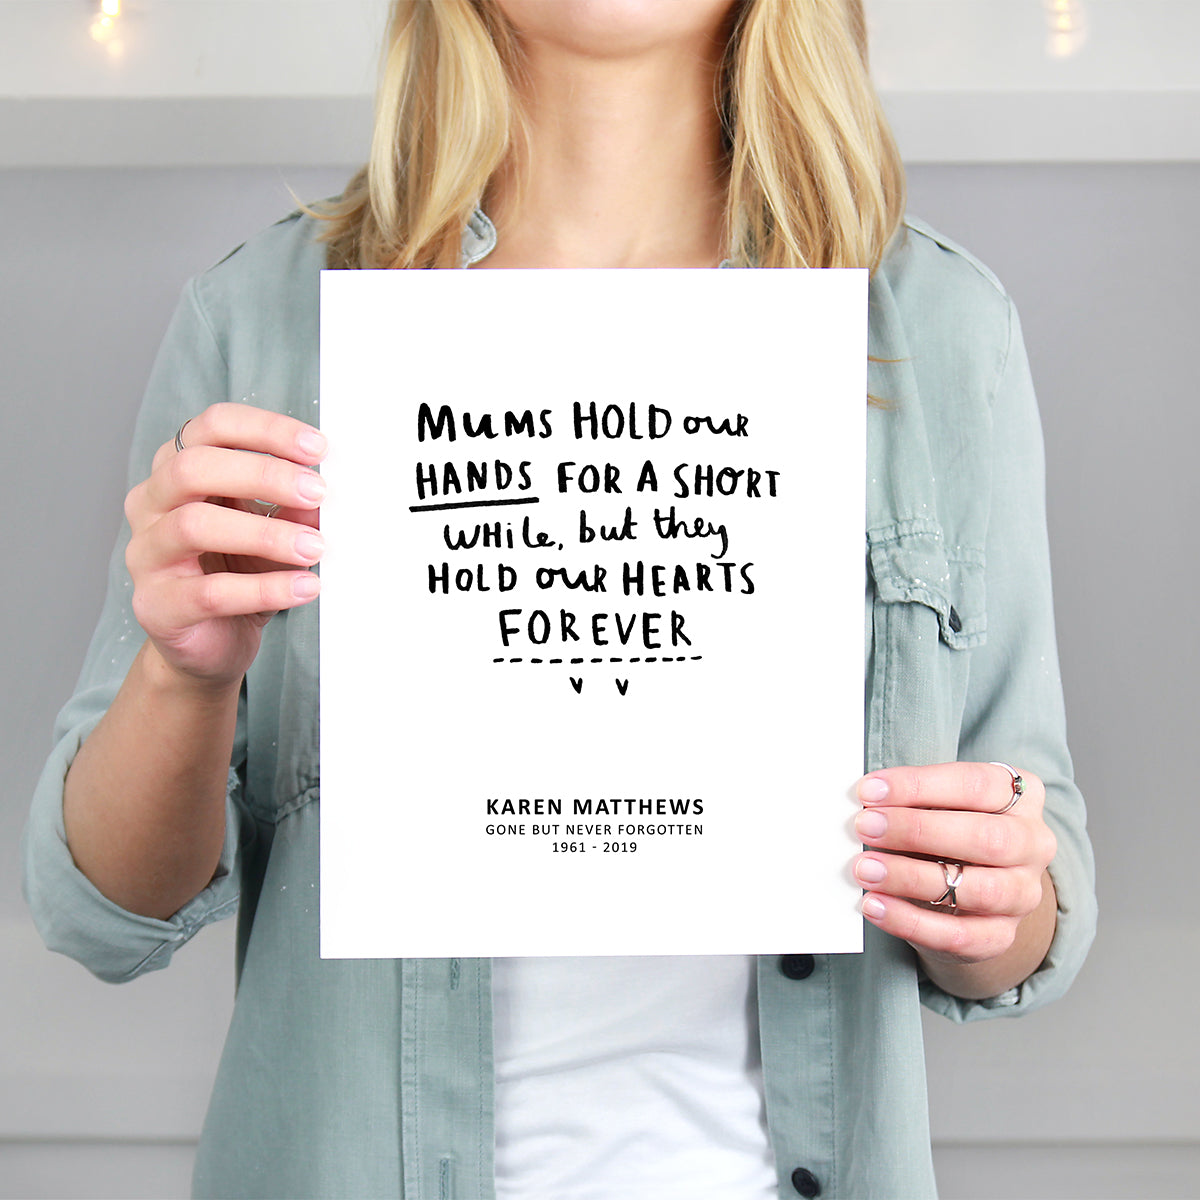 MUMS HOLD our
HANDS FOR A SHORT
WHILE, but they
HOLD our HEARTS
FOREVER
KAREN MATTHEWS
GONE BUT NEVER FORGOTTEN
1961 - 2019